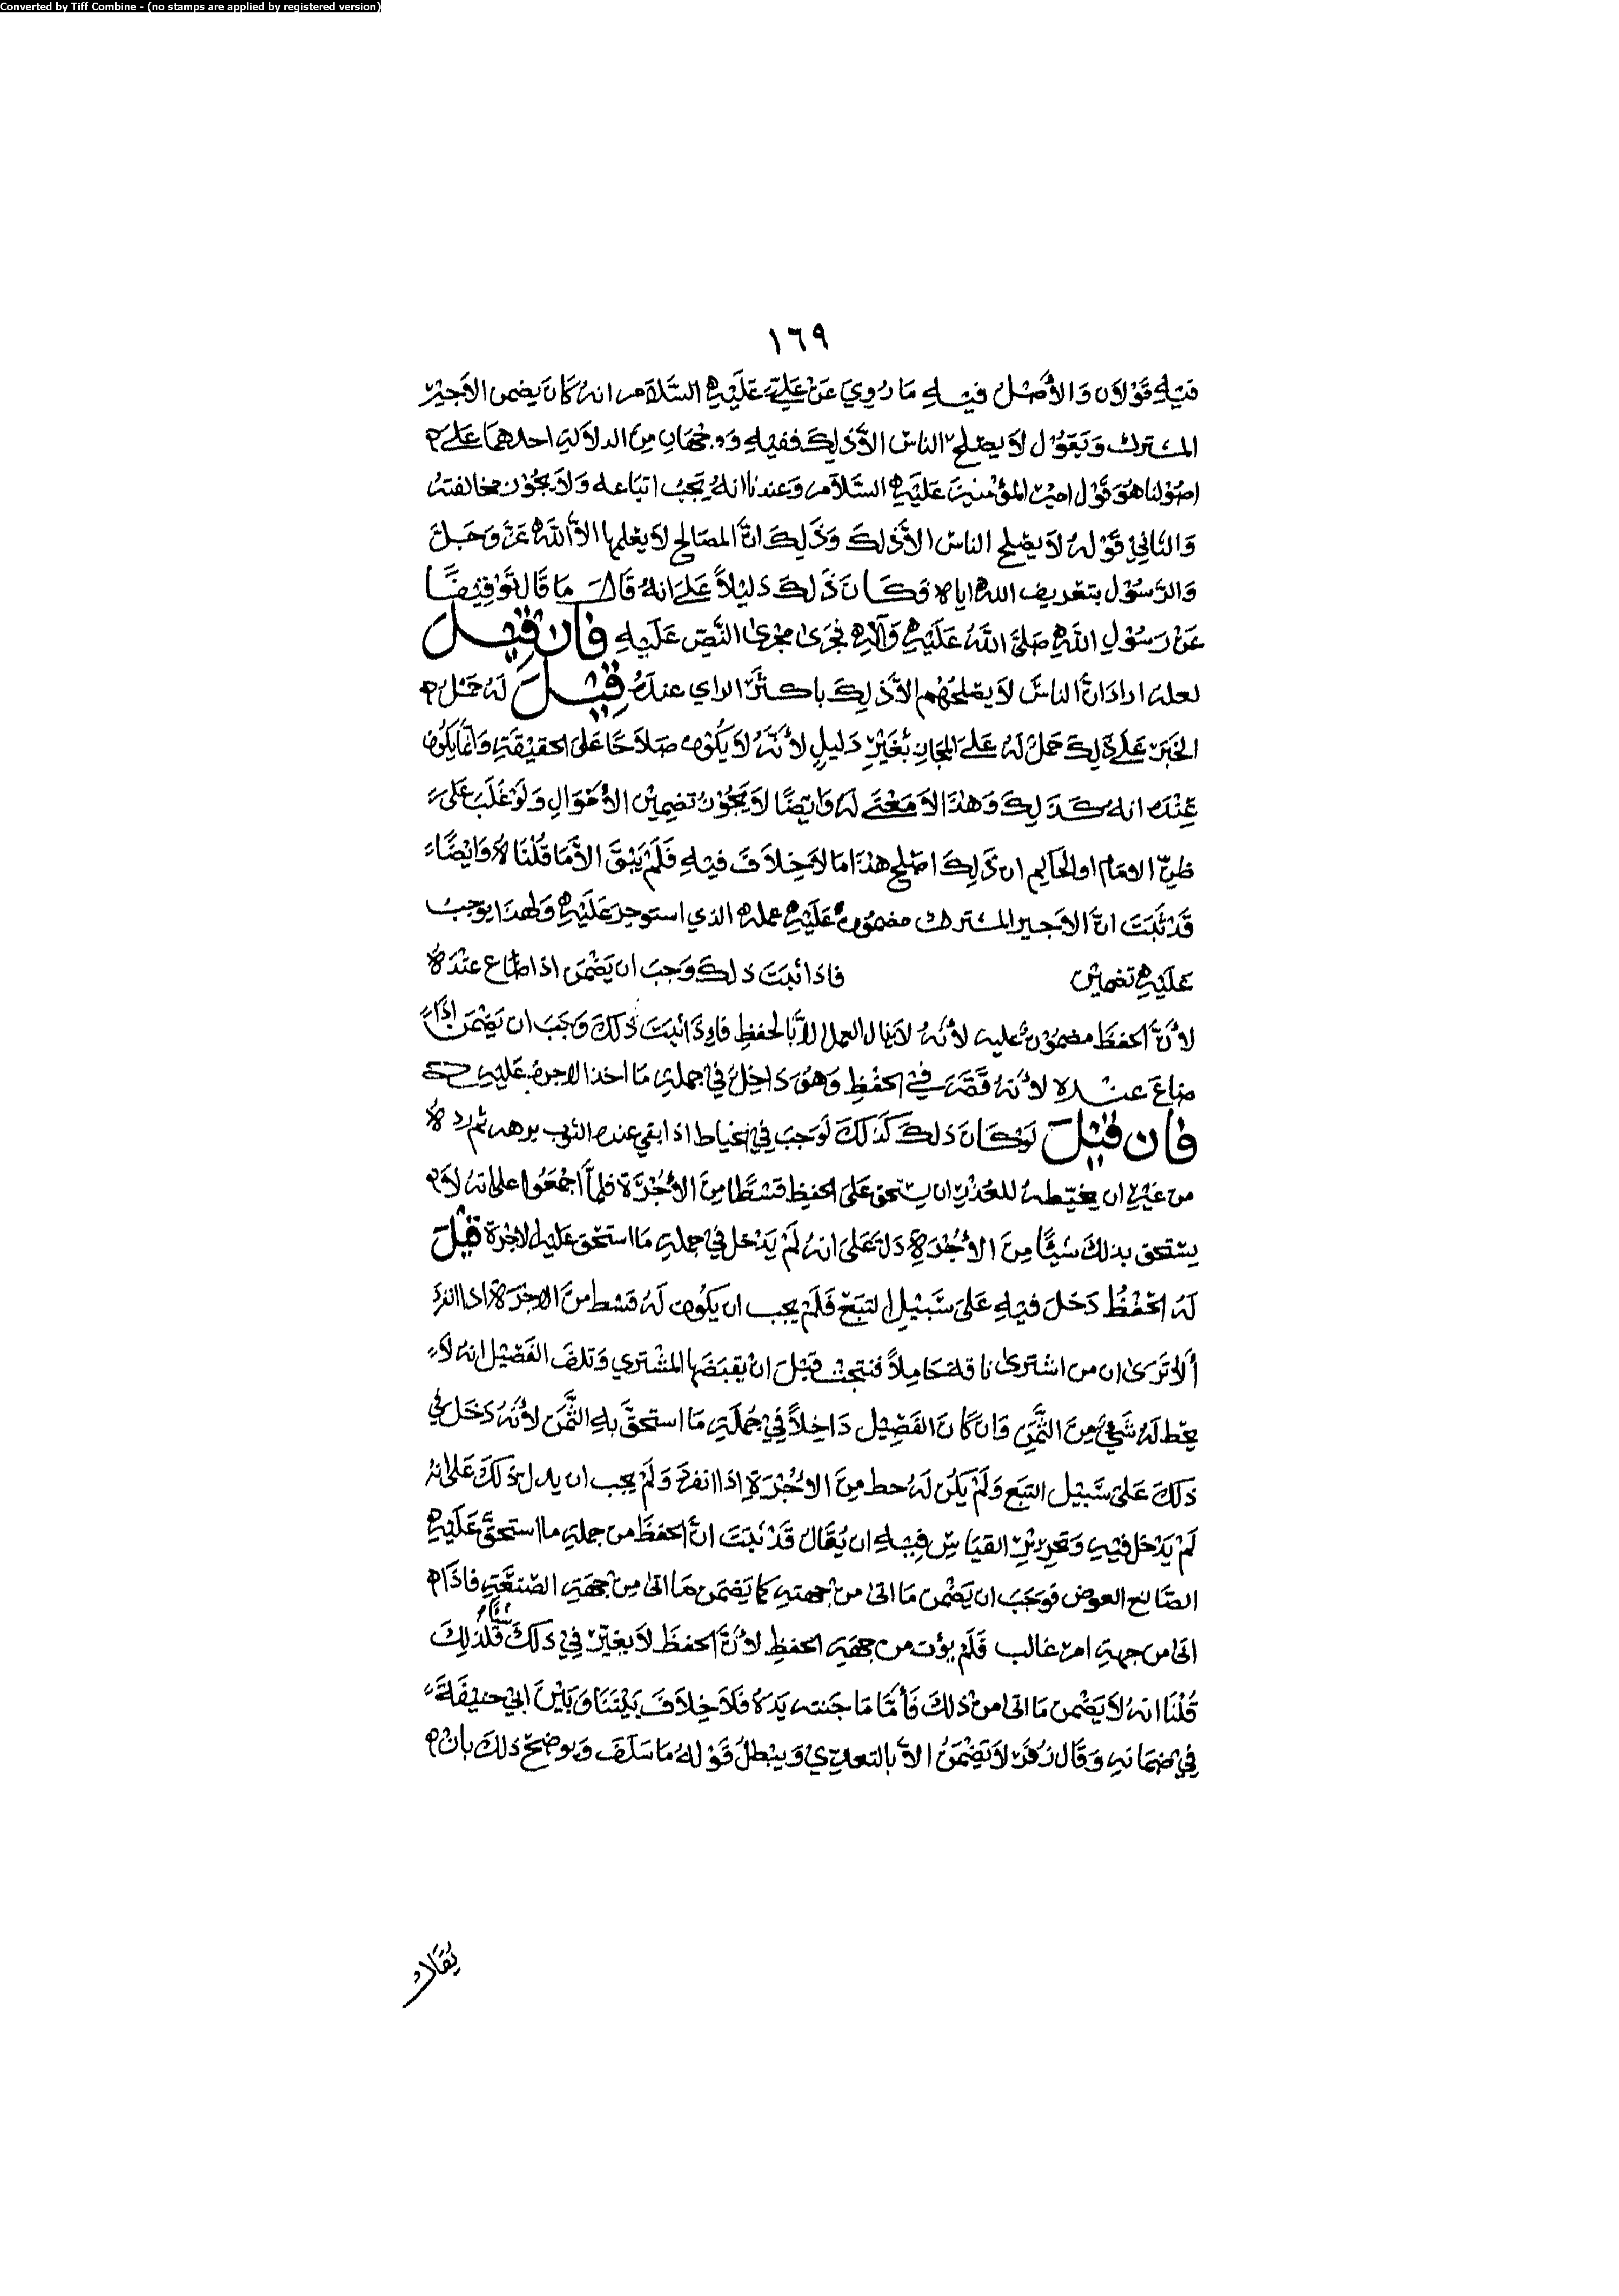 Converted by Tiff Combine - (no stamps are applied by registered version)
١٦٩
فيْهِ قَوْلاَن وَالأَصْل فيهِ مَا رُوِيَ عَنْ عَلِيّ عَلَيْهِ السَّلاَم انهُ كَانَ يضمن الاَجيْر
المشترك وَيَقوْل لاَ يصْلح الناسَ الاَّ ذلِكَ ففيْهِ وَجْهَانِ مِنَ الدلاَلة احدهمَا عَلَى
اصُوْلنا هُوَ قَوْل اميْر المؤْمنيْنَ عَلَيْهِ السَّلاَم وَعندنا انهُ يَجبُ اتبَاعه وَلاَ يجُوْز مخالفتهُ
وَالثانِيْ قَوْلهُ لاَ يصْلح الناسَ الاَّ ذلكَ وَذَلِكَ انَّ المصَالح لاَ يعْلمها الاَّ اللهُ عَزَّ وَجَلَّ
وَالرَّسُوْل بتعْريف الله اياه وَكَانَ ذَلكَ دَليْلاً عَلَى انهُ قَالَ مَا قَال تَوْقِيْفًا
عَنْ رَسُوْلِ اللهِ صَلَّى اللهُ عَلَيْهِ وَآلِهِ فجَرَى مجْرَى النَّصّ عَلَيهِ فان قيل
لعلهُ ارادَ انَّ الناسَ لاَ يصْلحهُم الاَّ ذلِكَ باكثَر الراي عندهُ قِيْلَ لَهُ حَمْل
الخبَر عَلَى ذَلِكَ حَمْلٌ لَهُ عَلَى المجَاز بغَيْر دَليلٍ لأَنَّهُ لاَ يَكُوْن صَلاَحًا عَلَى الحقيْقَةِ وَانَّمَا يَكُوْن
عِنْدَهُ انهُ كَذَلِكَ وَهَذَا لاَ مَعْنَى لَهُ وَايْضًا لاَ يَجُوْز تضمِيْن الأَمْوَالِ وَلَوْ غَلَبَ عَلَى
ظنِّ الامَام اوالحَاكِم ان ذَلِكَ اصْلح هذَا مَا لاَ خِلاَفَ فيْهِ فَلَمْ يَبْقَ الاَّ مَا قُلْنَاهُ وَايْضًا
قَدْ ثَبَتَ انَّ الاَجيرالمشترك مضمُوْن عَلَيْهِ عمله الذي استوجر عَلَيْهِ وَلهذَا يوْجبُ
عَلَيْهِ تضميْن فاذا ثبَتَ ذلكَ وَجبَ ان يَضْمَنَ اذا ضَاع عنْدَهُ
لأَنَّ الحفظَ مضمُوْنٌ عليه لأَنهُ لاَ ينال العمل الاَّ بالحفظِ فاذَا ثبَتَ ذلكَ وَجَبَ ان يَضْمَنَ اذَا
ضاعَ عنْده لأَنهُ قَصَّرَ فِيْ الحفْظِ وَهُوَ دَاخِلٌ فيْ جملةِ مَا اخذ الاجرة عَليهِ
فان قيْلَ لَوْ كَانَ ذلكَ كَذَلكَ لَوَجبَ فِيْ الخياط اذا بقي عنده الثوب برهة ثم ردهُ
من غيْر ان يخيّطهُ للعُذْر ان يستحق عَلَى الحفظِ قسْطًا مِنَ الأُجْرَة فلمَّا اجْمَعُوا على انهُ لاَ
يسْتحق بذلكَ شَيْئًا مِنَ الأُجْرَةِ دَلَّ عَلَى انهُ لَمْ يَدْخل فيْ جملةِ مَا استحَق عَليهِ الاجْرَة قيْلَ
لَهُ الحفْظُ دَخَلَ فيْهِ عَلَى سَّبيْلِ التبَع فَلَمْ يجب ان يَكُوْن لَهُ قسْط منَ الاجرَة اذا انفرَدَ
أَلاَ تَرَى ان من اشترى ناقة حَامِلاً فنتجت قبْلَ انْ يقبضَها المشْتري وَتلفَ الفَصيْل انهُ لاَ
يحطّ لَهُ شَيْءٌ مِنَ الثَّمَنِ وَانْ كَانَ الفَصِيْل دَاخِلاً فِيْ جُمْلَةِ مَا استحقَّ بهِ الثَّمَن لأَنهُ دَخَلَ فِي
ذلكَ عَلَى سَّبيْل التبَع وَلَمْ يَكُن لَهُ حط مِنَ الاُجْرَةِ اذا انفرَدَ وَلَمْ يجب ان يدل ذلكَ عَلَى انهُ
لَمْ يَدْخل فيْهِ وَتحْريْر القيَاسِ فِيْهِ ان يُقَال قَدْ ثَبَتَ انَّ الحفظَ من جملةِ ما استحقَّ عَلَيْهِ
الصَّانع العوض فوَجَبَ ان يَضْمن مَا اتى من جهتهِ كما يَضمَن مَا اتى مِنْ جهَةِ الصّنعَةِ فاذَا
اتى من جهةِ امر غالب فَلَمْ يؤت من جهَةِ الحفظِ لأَنَّ الحفظَ لاَ يغيّر فِيْ ذلكَ شيْئًا فَلذلِكَ
قُلْنَا انهُ لاَ يَضْمن مَا اتى منْ ذلكَ فَأَمَّا مَا جَنته يَدَهُ فَلاَ خِلاَفَ بَيْننَا وَبَيْنَ ابيْ حَنيْفَةَ
فِيْ ضمَانهِ وَقَال زُفَر لاَ يَضْمَنُ الاَّ بالتعدِّيْ وَيبْطلُ قَوْلهُ مَا سَلَفَ وَيوضحُ ذلكَ بانْ
يُقَال